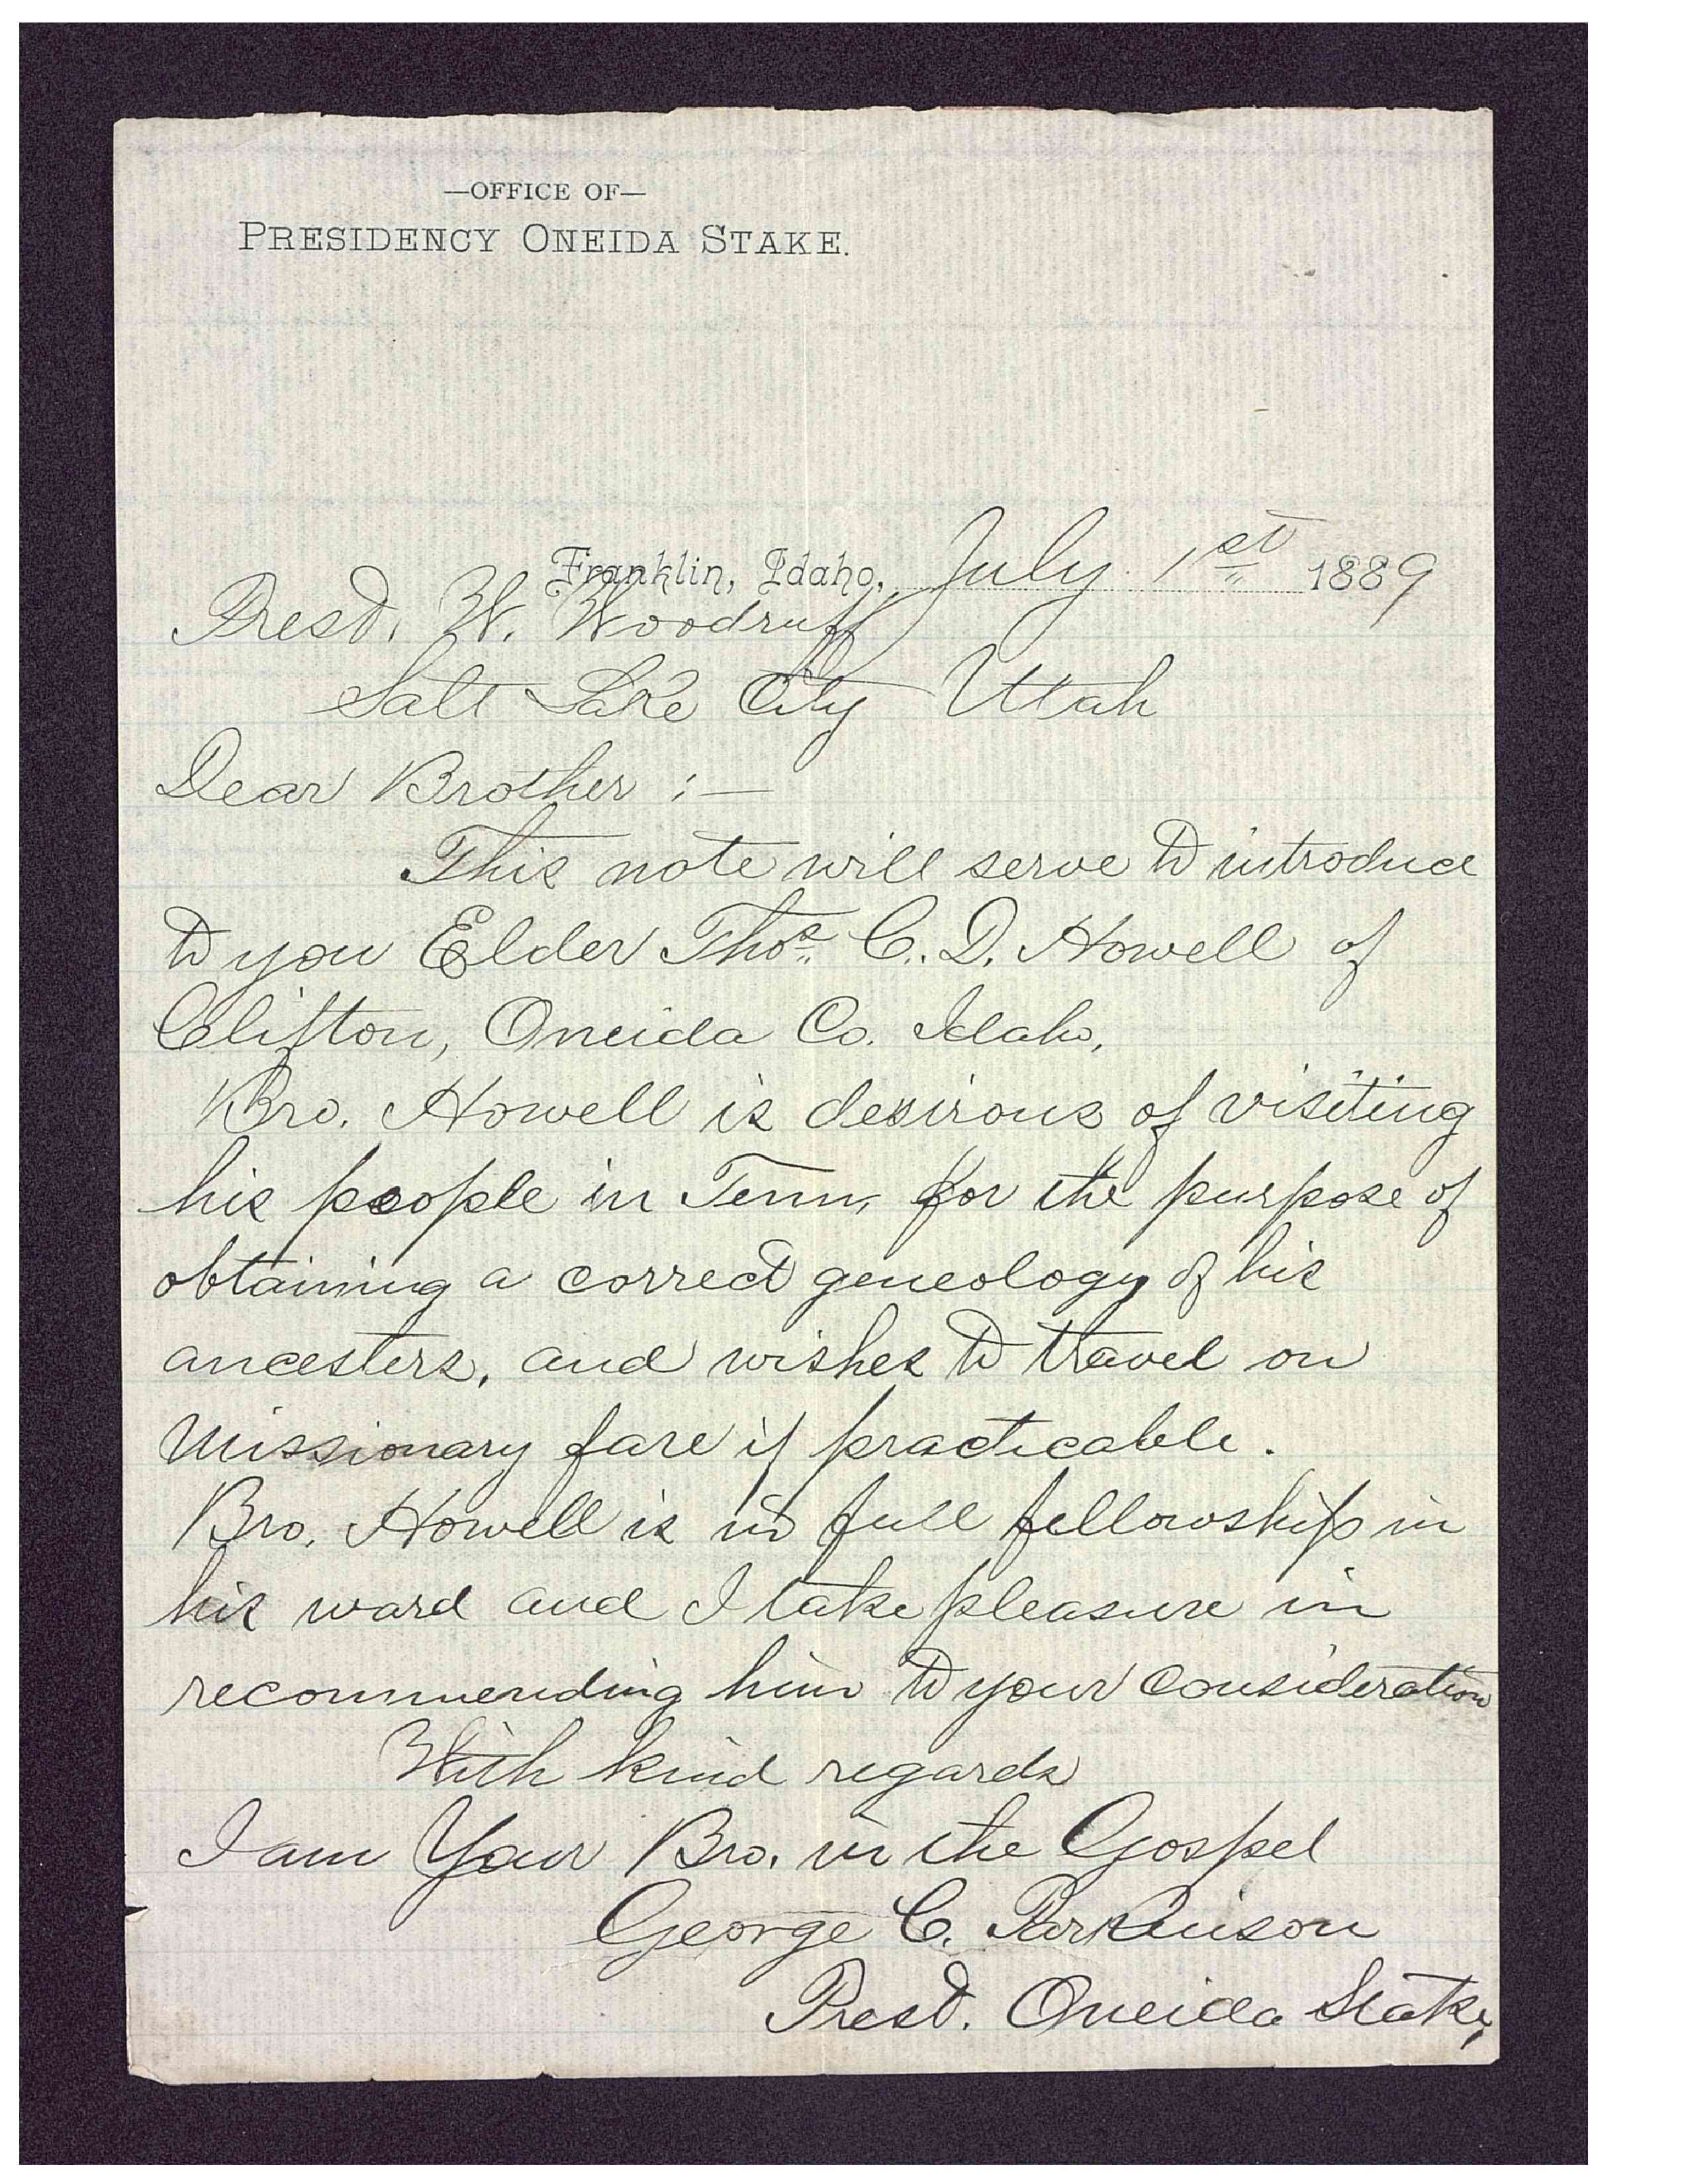 —OFFICE OF—
PRESIDENCY ONEIDA STAKE.
Franklin, Idaho, July 1st 1889
Presd. W. Woodruff
Salt Lake City Utah
Dear Brother :—
This note will serve to introduce
to you Elder Thos. C. D. Howell of
Clifton, Oneida Co. Idaho,
Bro. Howell is desirous of visiting
his people in Tenn, for the purpose of
obtaining a correct geneology of his
ancesters, and wishes to travel on
Missionary fare if practicable.
Bro. Howell is in full fellowship in
his ward and I take pleasure in
recommending him to your consideration
With kind regards
I am Your Bro. in the Gospel
George C. Parkinson
Presd. Oneida Stake,